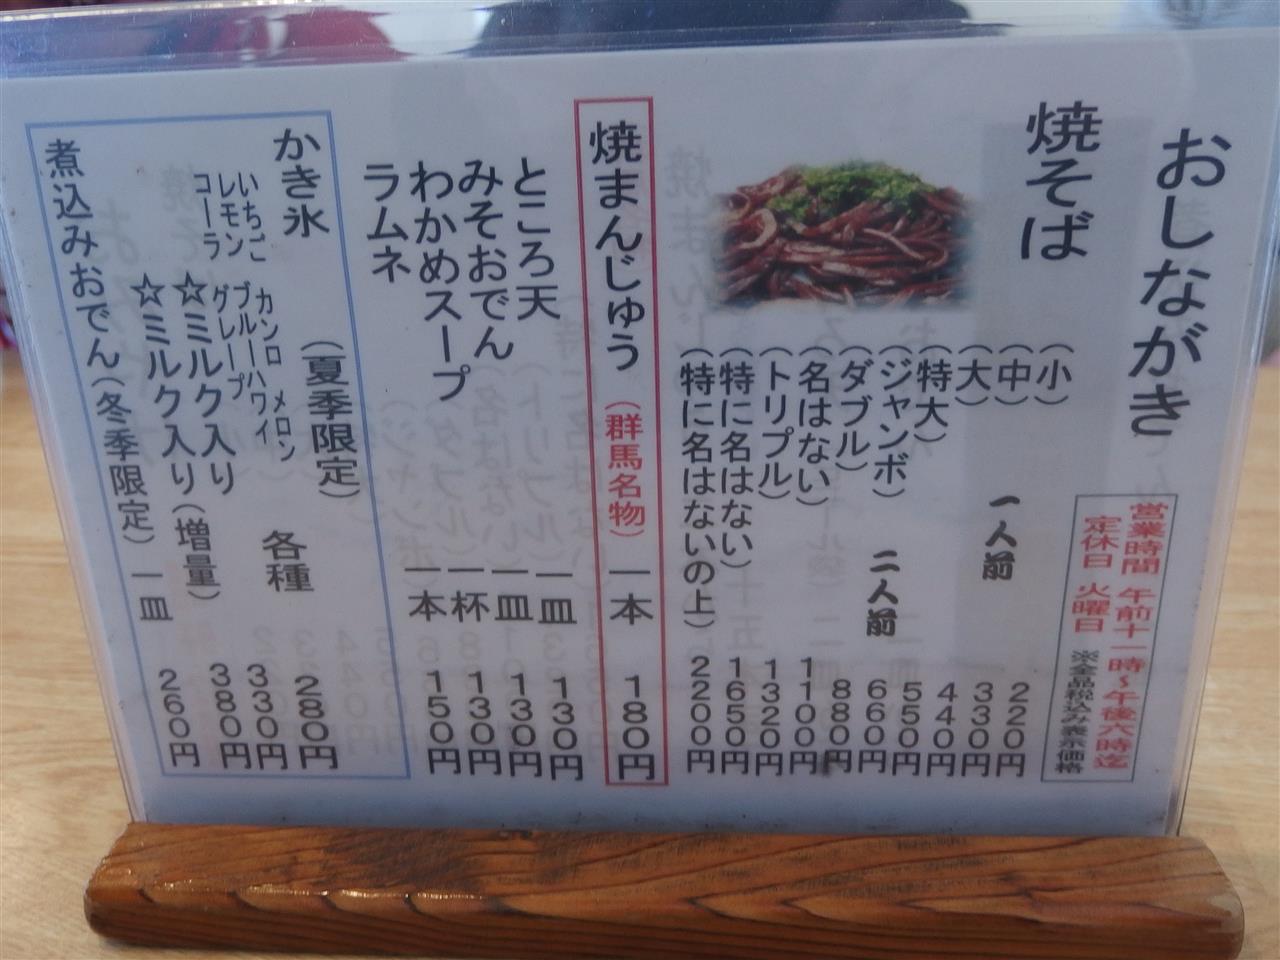 おしながき
営業時間 午前十一時～午後六時迄
定休日 火曜日 ※全品税込み表示価格
焼そば
(小) 220円
(中) 一人前 330円
(大) 440円
(特大) 550円
(ジャンボ) 二人前 660円
(ダブル) 880円
(名はない) 1100円
(トリプル) 1320円
(特に名はない) 1650円
(特に名はないの上) 2200円
焼まんじゅう (群馬名物) 一本 180円
ところ天 一皿 130円
みそおでん 一皿 130円
わかめスープ 一杯 130円
ラムネ 一本 150円
かき氷 (夏季限定) 各種 280円
いちご カンロ メロン
レモン ブルーハワイ
コーラ グレープ
☆ミルク入り 330円
☆ミルク入り (増量) 380円
煮込みおでん (冬季限定) 一皿 260円